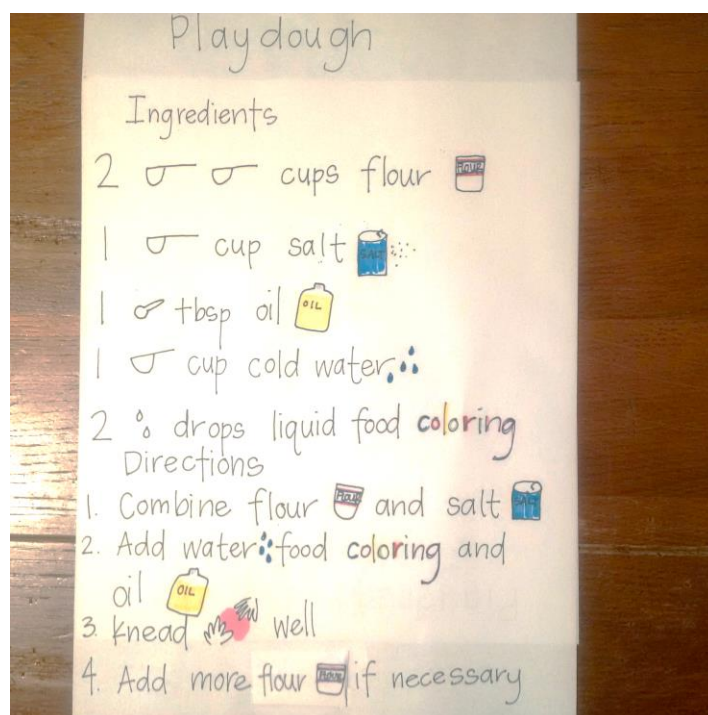 Playdough
Ingredients
2 cups flour FLOUR
1 cup salt SALT
1 tbsp oil OIL
1 cup cold water
2 drops liquid food coloring
Directions
1. Combine flour FLOUR and salt SALT
2. Add water food coloring and
oil OIL
3. Knead well
4. Add more flour FLOUR if necessary